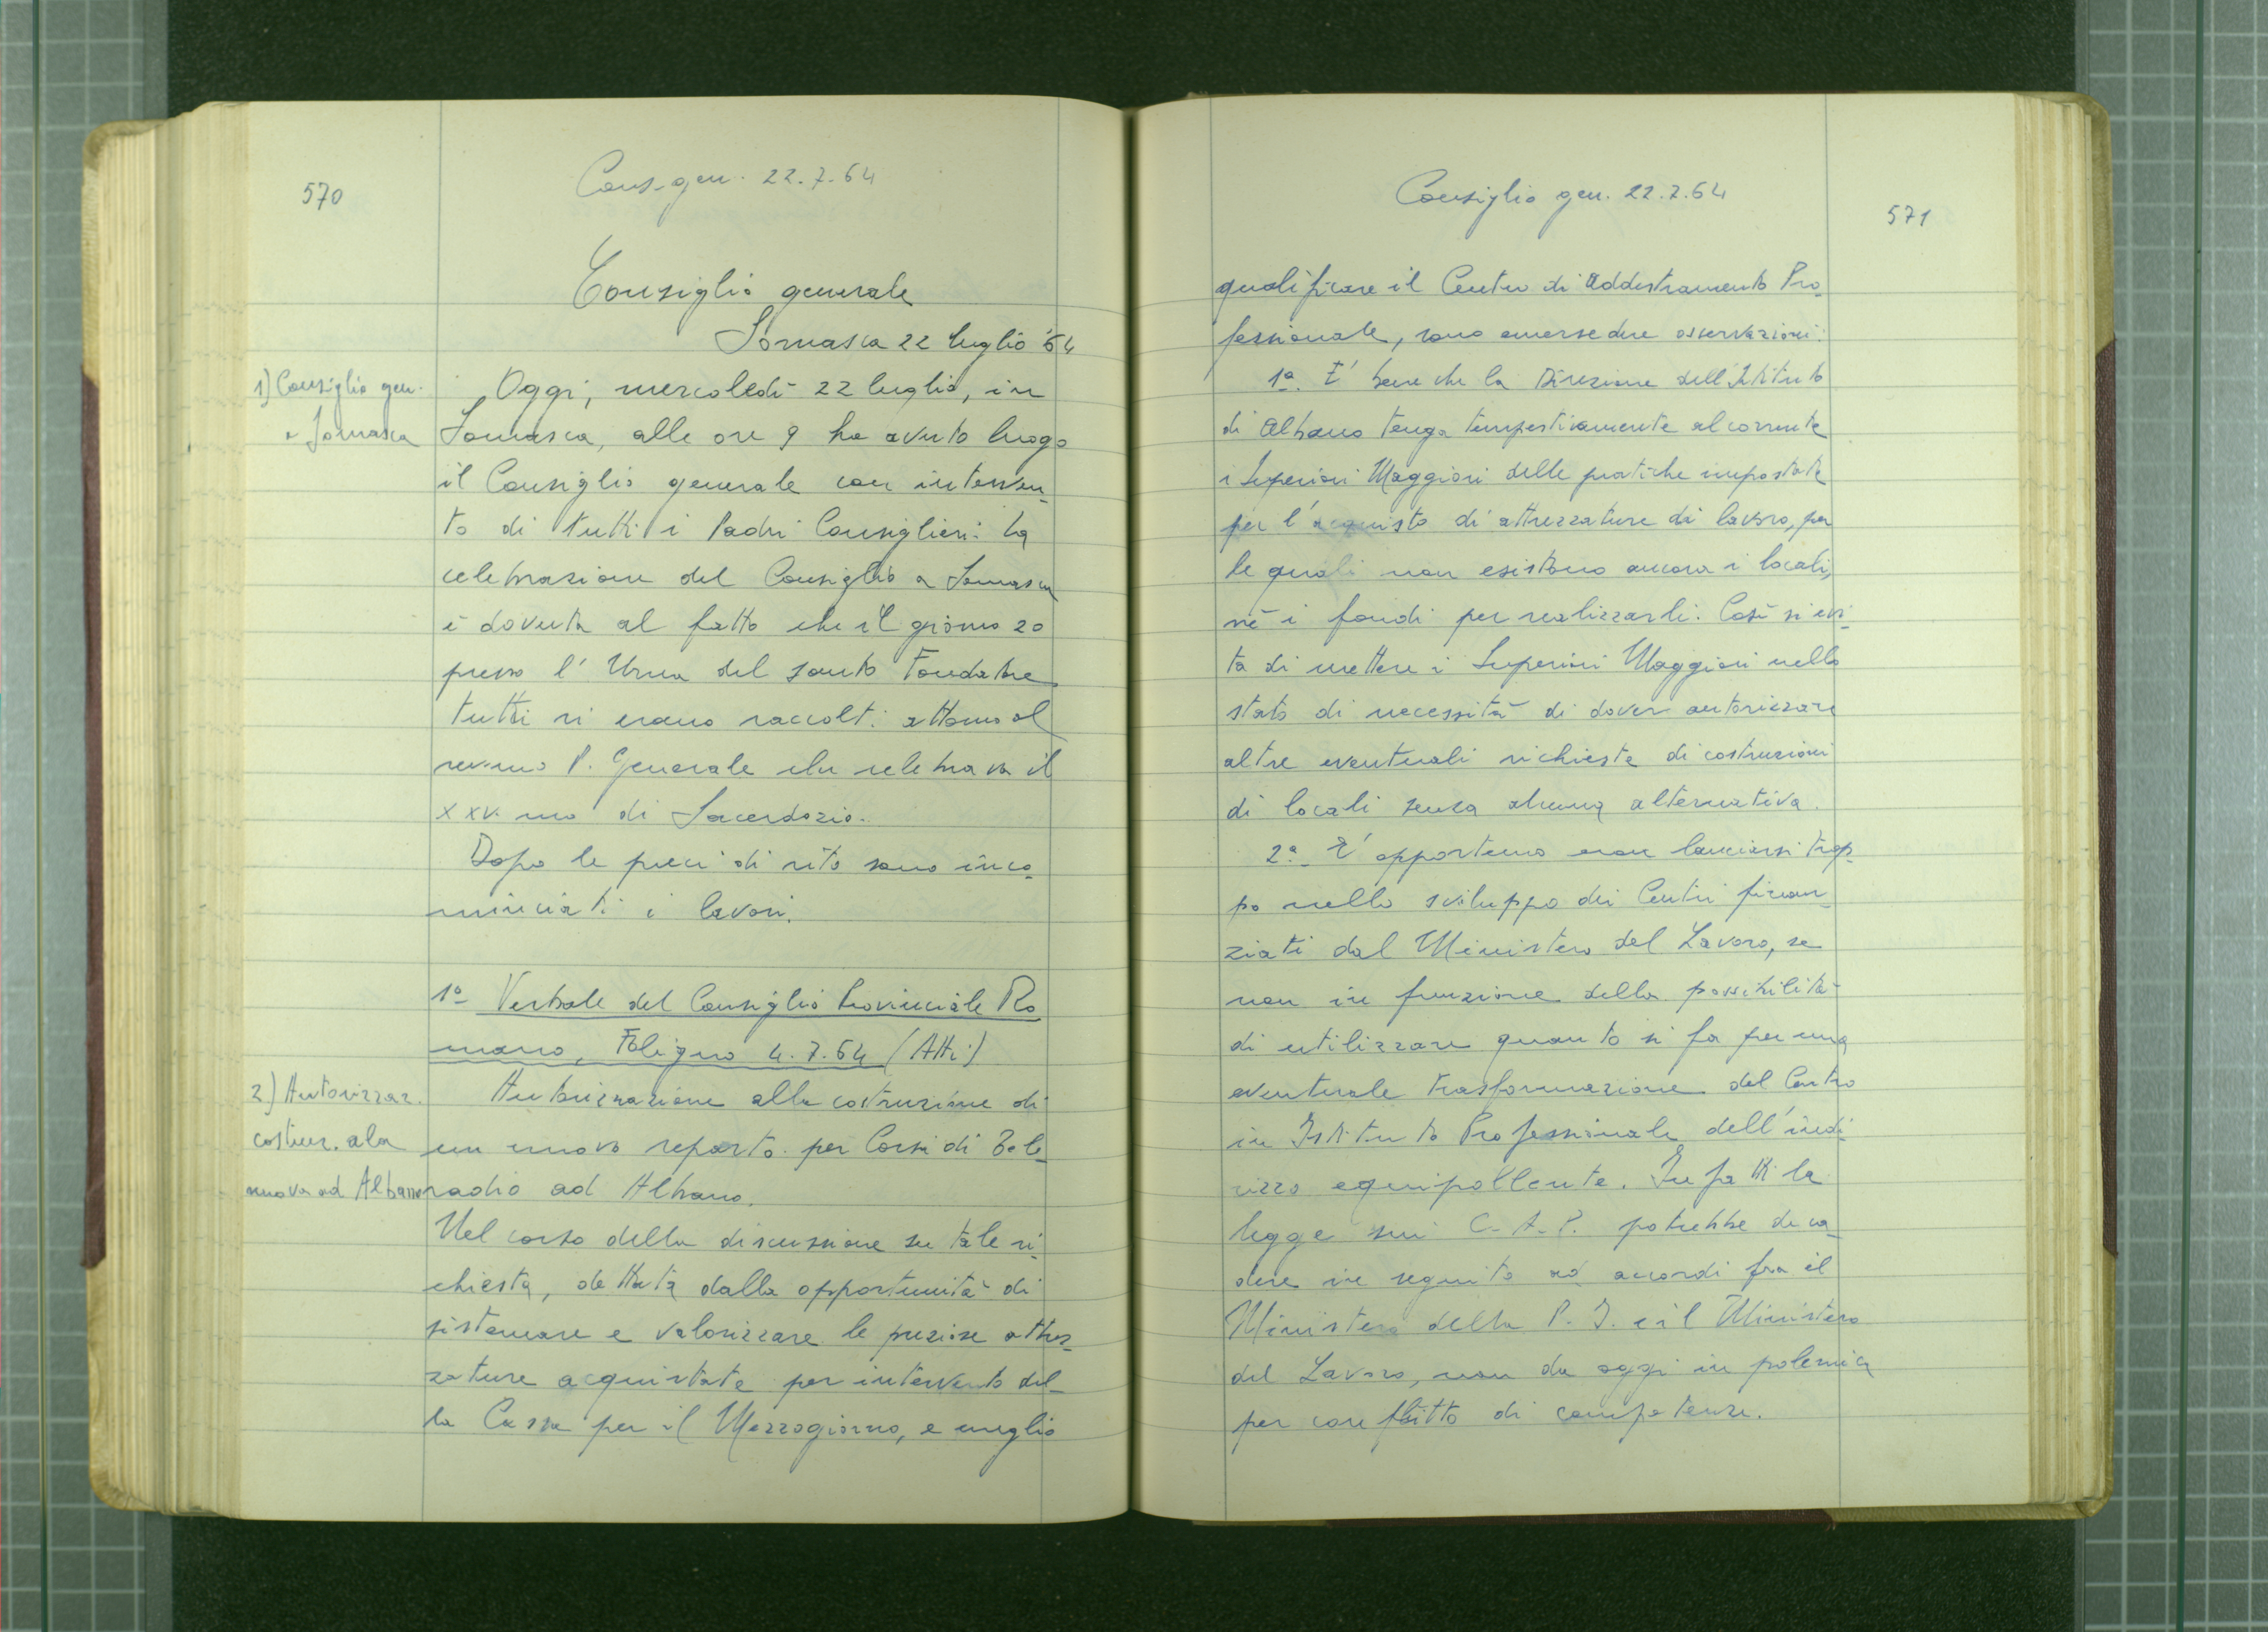 570
Cons. gen. 22.7.64
Consiglio generale
Somasca 22 luglio '64
1) Consiglio gen.
a Somasca
Oggi, mercoledì 22 luglio, in
Somasca, alle ore 9 ha avuto luogo
il Consiglio generale con interven-
to di tutti i Padri Consiglieri. La
celebrazione del Consiglio a Somasca
è dovuta al fatto che il giorno 20
presso l'Urna del santo Fondatore
tutti si erano raccolti attorno al
rev.mo P. Generale che celebrava il
XXV.mo di Sacerdozio.
Dopo le preci di rito sono inco-
minciati i lavori.
1º Verbale del Consiglio Provinciale Ro
mano, Foligno 4.7.64 (Atti)
2) Autorizzaz.
costruz. ala
nuova ad Albano
Autorizzazione alla costruzione di
un nuovo reparto per Corsi di Tele-
radio ad Albano.
Nel corso della discussione su tale ri-
chiesta, dettata dalla opportunità di
sistemare e valorizzare le preziose attrez-
zature acquistate per intervento del-
la Cassa per il Mezzogiorno, e meglio
Consiglio gen. 22.7.64
571
qualificare il Centro di Addestramento Pro-
fessionale, sono emerse due osservazioni:
1ª. E' bene che la Direzione dell'Istituto
di Albano tenga tempestivamente al corrente
i Superiori Maggiori delle pratiche impostate
per l'acquisto di attrezzature di lavoro, per
le quali non esistono ancora i locali,
nè i fondi per realizzarli. Così si evi-
ta di mettere i Superiori Maggiori nello
stato di necessità di dover autorizzare
altre eventuali richieste di costruzioni
di locali senza alcuna alternativa.
2ª. E' opportuno non lanciarsi trop-
po nello sviluppo dei Centri finan-
ziati dal Ministero del Lavoro, se
non in funzione della possibilità
di utilizzare quanto si fa per una
eventuale trasformazione del Centro
in Istituto Professionale dell'indi-
rizzo equipollente. Infatti la
legge sui C.A.P. potrebbe deca-
dere in seguito ad accordi fra il
Ministero della P.I. e il Ministero
del Lavoro, non da oggi in polemica
per conflitto di competenze.